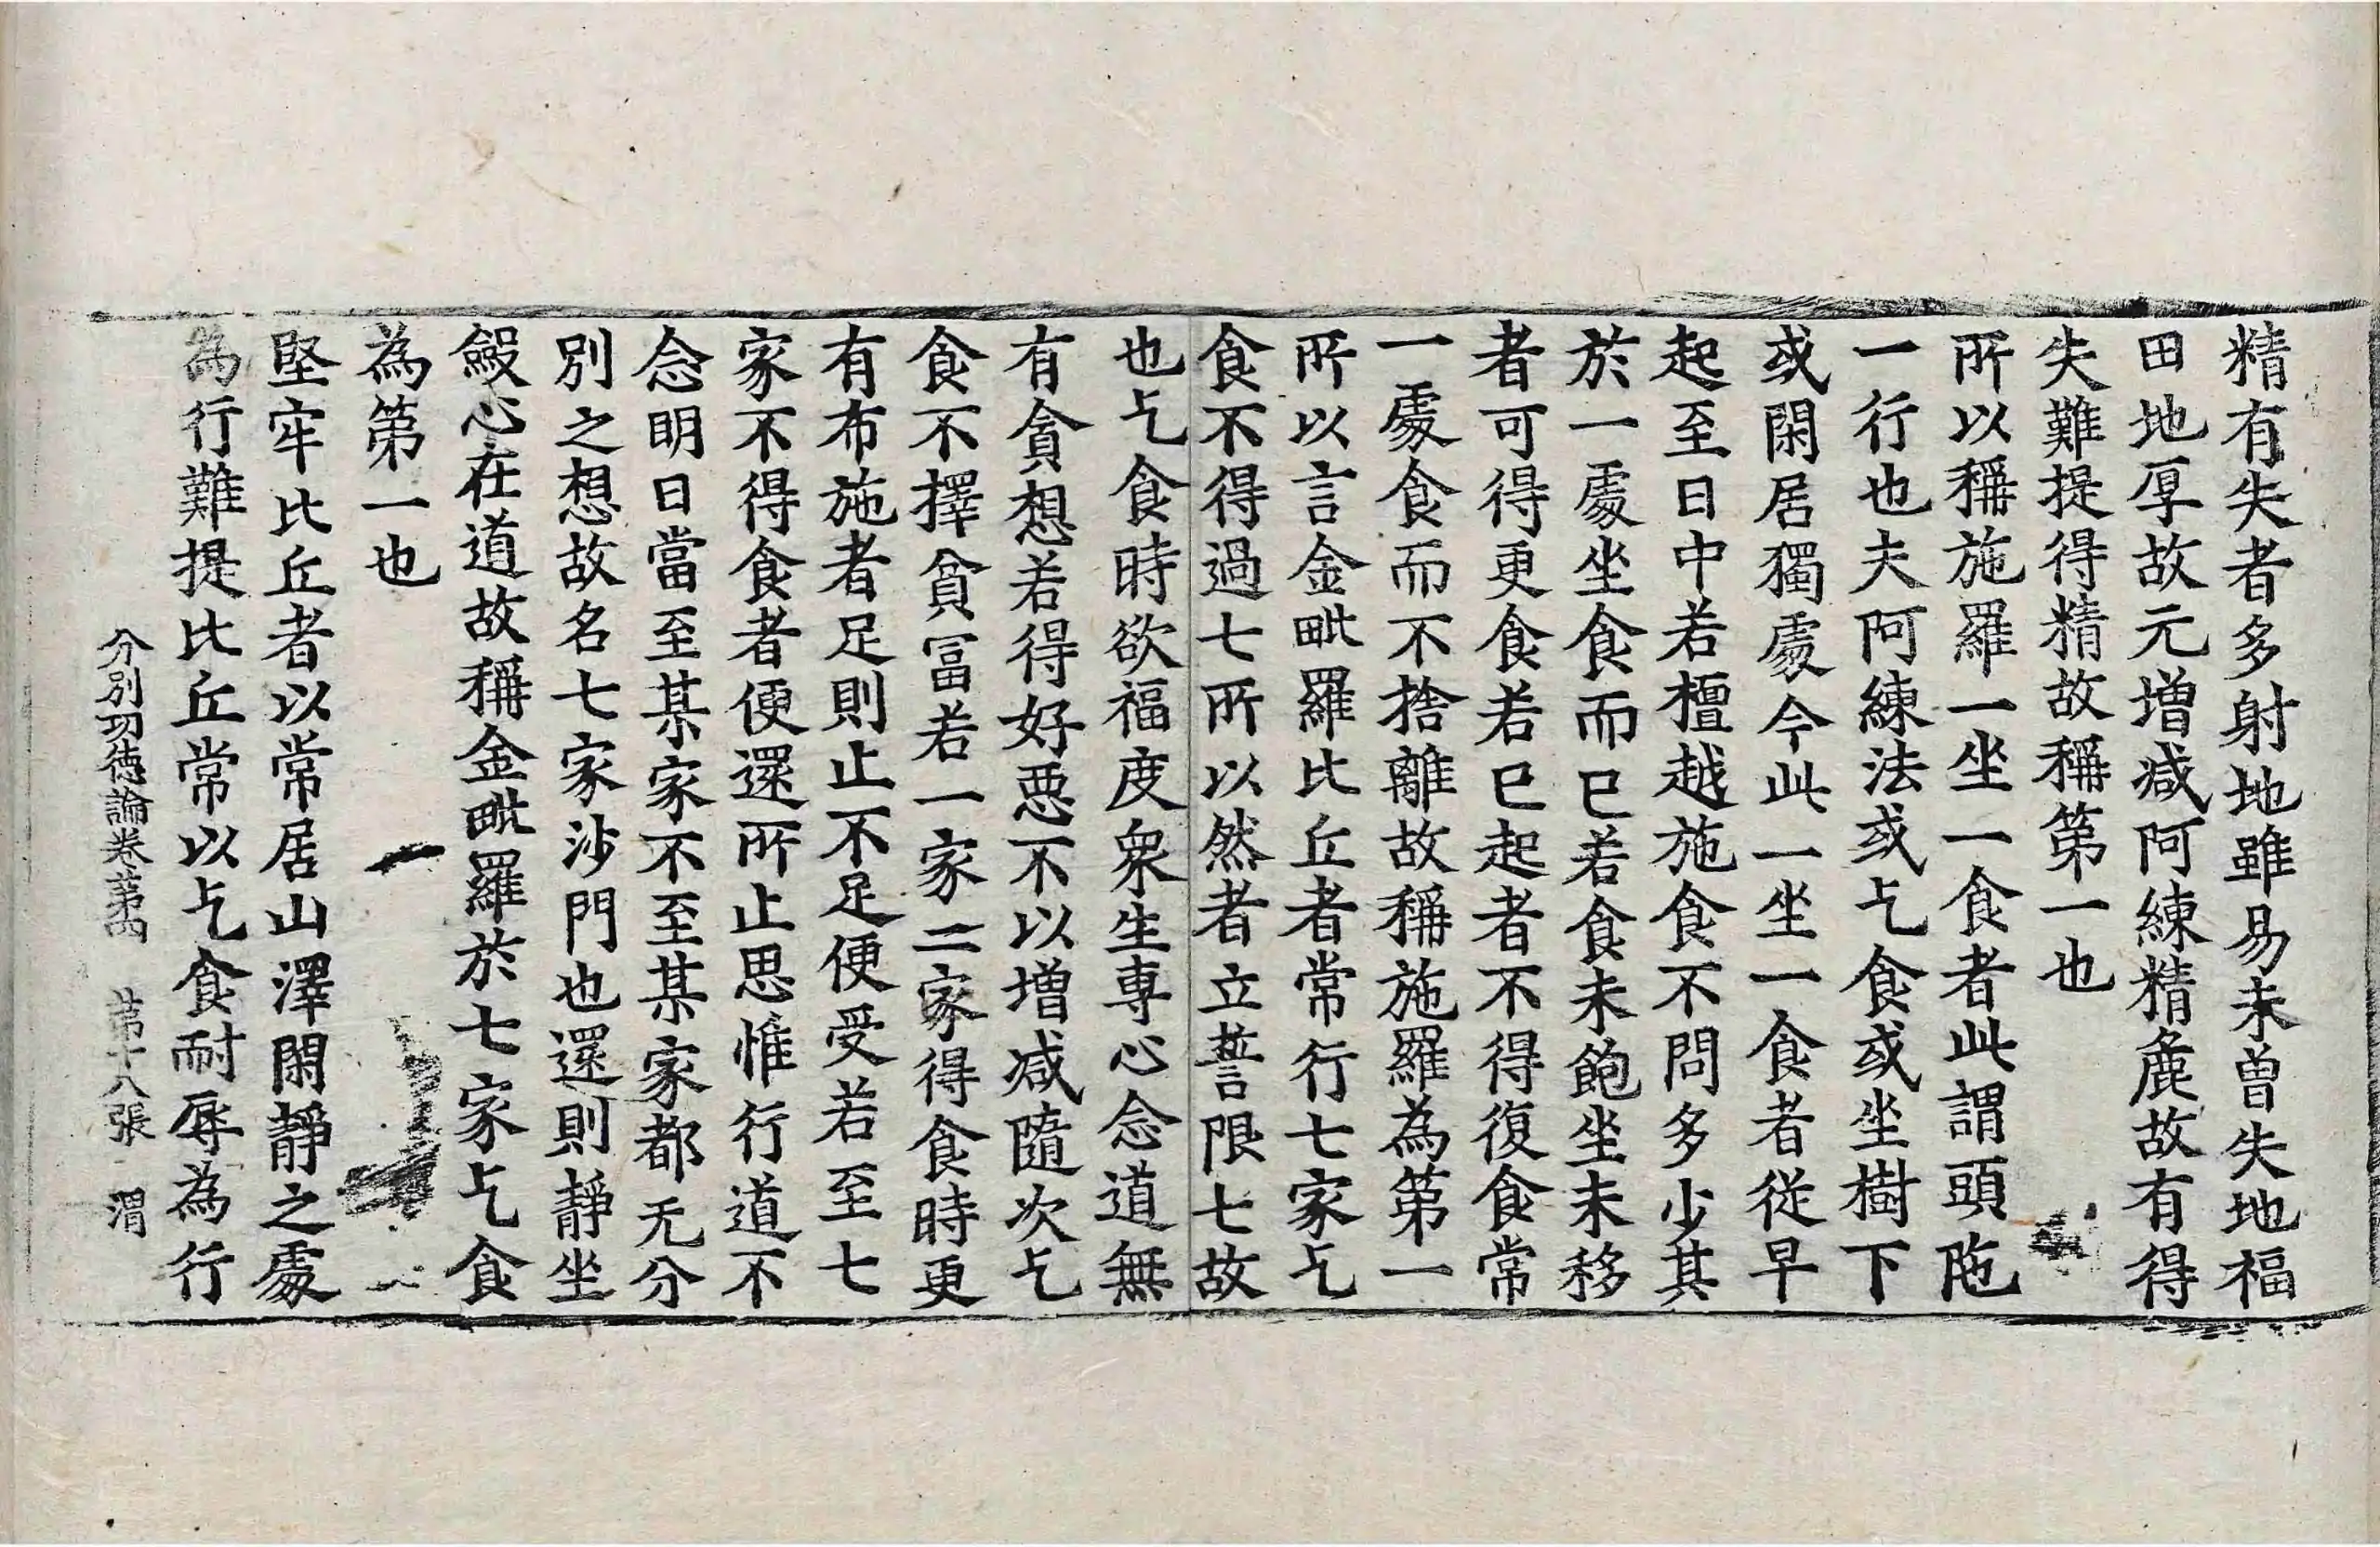 精有失者多射地雖易未曽失地福
田地厚故元增減阿練精麁故有得
失難提得精故稱第一也
所以稱施羅一坐一食者此謂頭陁
一行也夫阿練法或乞食或坐樹下
或閑居獨處今此一坐一食者從早
起至日中若檀越施食不問多少其
於一處坐食而已若食未飽坐未移
者可得更食若已起者不得復食常
一處食而不捨離故稱施羅為第一
所以言金毗羅比丘者常行七家乞
食不得過七所以然者立誓限七故
也乞食時欲福度衆生專心念道無
有貪想若得好惡不以增減隨次乞
食不擇貧冨若一家二家得食時更
有布施者足則止不足便受若至七
家不得食者便還所止思惟行道不
念明日當至某家不至某家都无分
別之想故名七家沙門也還則靜坐
斂心在道故稱金毗羅於七家乞食
為第一也
堅牢比丘者以常居山澤閑靜之處
為行難提比丘常以乞食耐辱為行
分別功德論卷苐四 苐十八張 渭